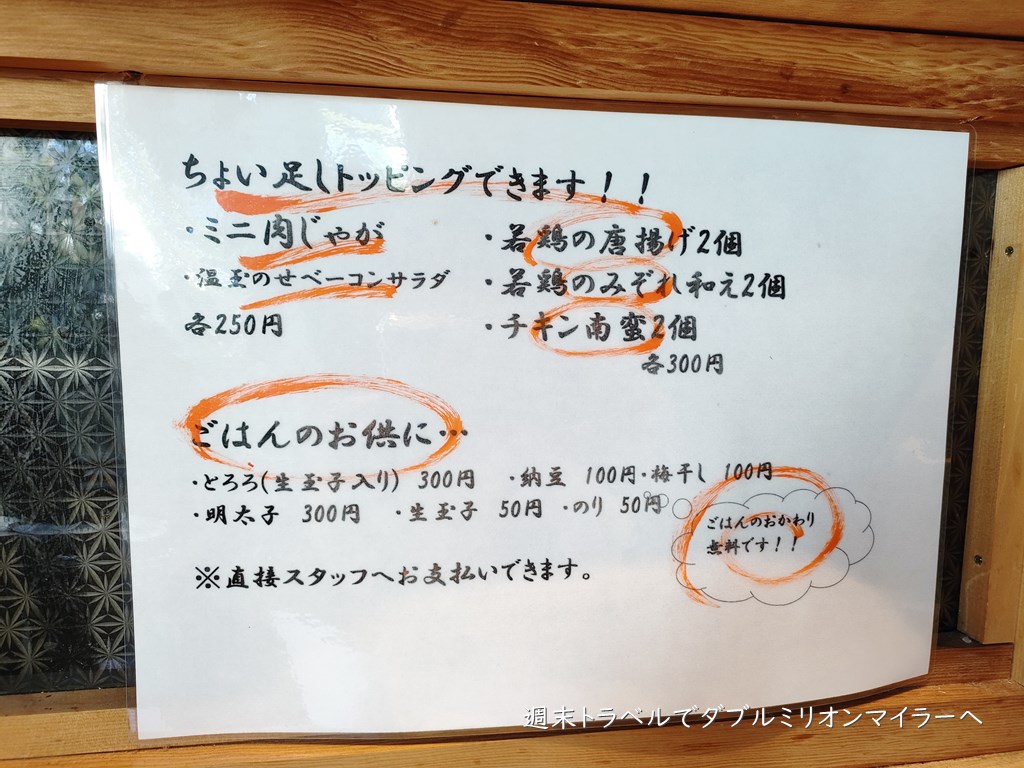 ちょい足しトッピングできます！！
・ミニ肉じゃが
・温玉のせベーコンサラダ
各250円
・若鶏の唐揚げ2個
・若鶏のみぞれ和え2個
・チキン南蛮2個
各300円
ごはんのお供に…
・とろろ(生玉子入り) 300円 ・納豆 100円・梅干し 100円
・明太子 300円 ・生玉子 50円 ・のり 50円
ごはんのおかわり
無料です！！
※直接スタッフへお支払いできます。
週末トラベルでダブルミリオンマイラーへ